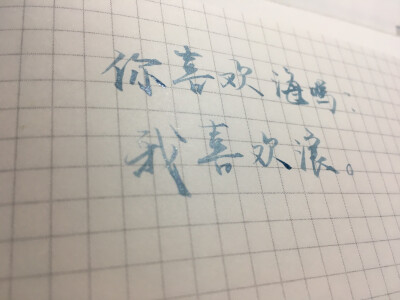 你喜欢海吗.
我喜欢浪。